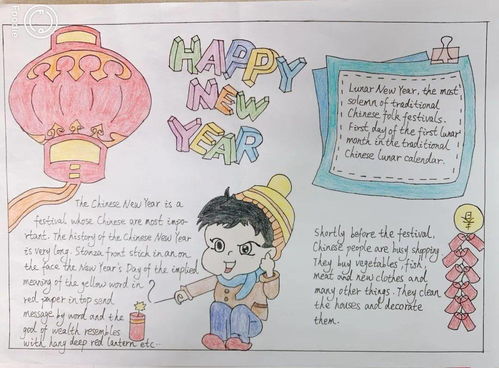 HAPPY
NEW
YEAR
Lunar New Year, the most
solemn of traditional
Chinese folk festivals.
First day of the first lunar
month in the traditional
Chinese lunar calendar.
The Chinese New Year is a
festival whose Chinese are most impor-
tant. The history of the Chinese New Year
is very long. Stonza front stick in an on
the face the New Year's Day of the implied
meaning of the yellow word in
red paper in top send
message by word and the
god of wealth resembles
with hang deep red lantern etc..
Shortly before the festival,
Chinese people are busy shopping
They buy vegetables, fish
meat and new clothes and
many other things. They clean
the houses and decorate
them.